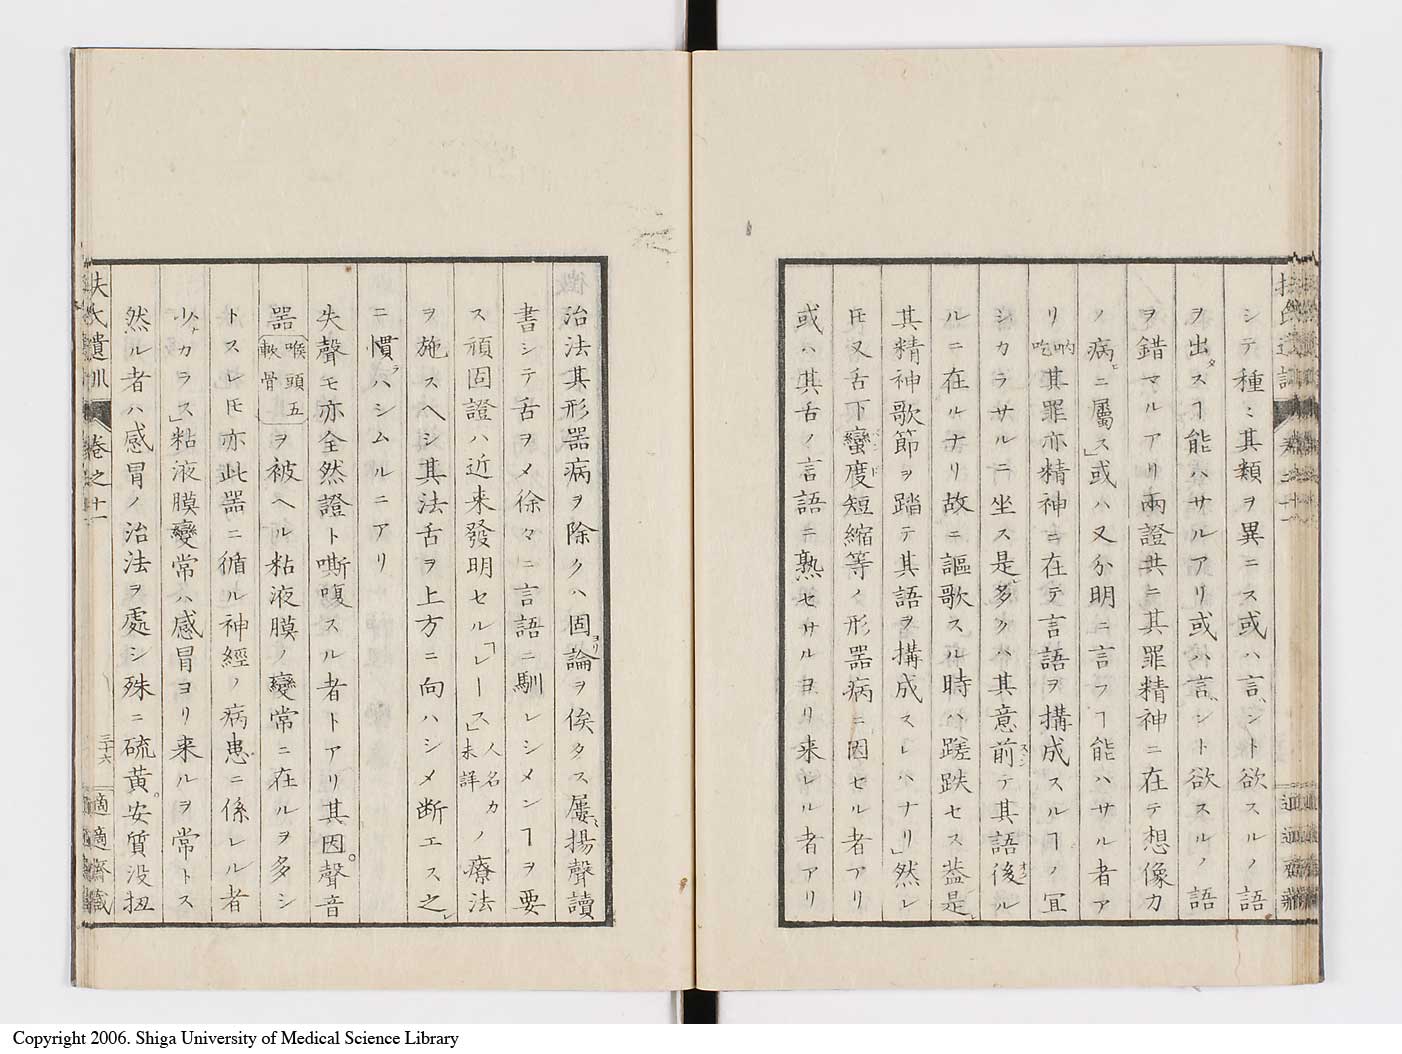 シテ種〻其類ヲ異ニス或ハ言ント欲スルノ語
ヲ出スヿ能ハサルアリ或ハ言ント欲スルノ語
ヲ錯マルアリ兩證共ニ其罪精神ニ在テ想像力
ノ病ニ屬ス」或ハ又分明ニ言フヿ能ハサル者ア
リ吶吃其罪亦精神ニ在テ言語ヲ搆成スルヿノ冝
シカラサルニ坐ス是多クハ其意前テ其語後ル
ルニ在ルナリ故ニ謳歌スル時ハ蹉跌セス葢是
其精神歌節ヲ踏テ其語ヲ搆成スレハナリ」然レ
𪜈又舌下蠻度短縮等ノ形器病ニ因セル者アリ
或ハ其舌ノ言語ニ熟セサルヨリ来レル者アリ
治法其形器病ヲ除クハ固ヨリ論ヲ俟タス屢揚聲讀
書シテ舌ヲメ徐々ニ言語ニ馴レシメンヿヲ要
ス頑固證ハ近来發明セル「レース」人名カ未詳ノ療法
ヲ施スヘシ其法舌ヲ上方ニ向ハシメ断エス之
ニ慣ハシムルニアリ
失聲モ亦全然證ト嘶嗄スル者トアリ其因聲音
器喉頭五軟骨ヲ被ヘル粘液膜ノ變常ニ在ルヲ多シ
トスレ𪜈亦此器ニ循ル神經ノ病患ニ係レル者
少ナカラス」粘液膜變常ハ感冒ヨリ来ルヲ常トス
然ル者ハ感冒ノ治法ヲ處シ殊ニ硫黄安質没扭
扶氏遺訓 卷之十一 三十六 適適齋藏